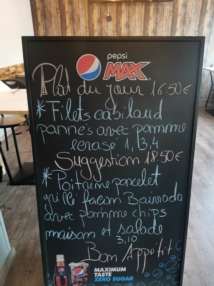 pepsi
MAX
Plat du jour 16.50€
*Filets cabilaud
pannés avec pomme
ecrasé 1,3,4
Suggestion 18.50€
*Poitrine porcelet
grillé facon Bairrada
avec pomme chips
maison et salade
3,10
Bon Appetit!
MAXIMUM
TASTE
ZERO SUGAR